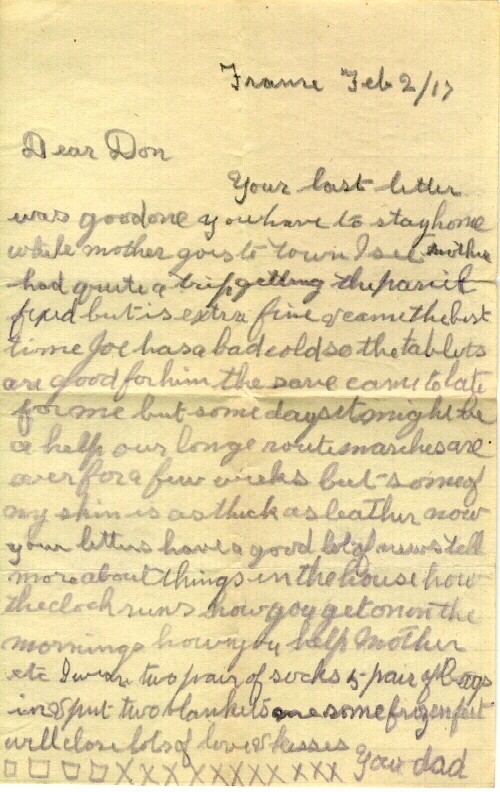 France Feb 2/17
Dear Don
Your last letter
was good one you have to stay home
while mother goes to town I see mother
had quite a trip getting the parcel
fixed but is extra fine & came the best
time Joe has a bad cold so the tablets
are good for him the save came to late
for me but some days it might be
a help our longe route marches are
over for a few weeks but some of
my skin is as thick as leather now
your letters have a good lot of news tell
more about things in the house how
the clock runs how you get on in the
mornings how you help Mother
etc I wear two pair of socks 5 pair of
in & put two blankets are some frozen feet
will close lots of love & kisses Your dad
□ □ □ □ X X X X X X X X X X X X